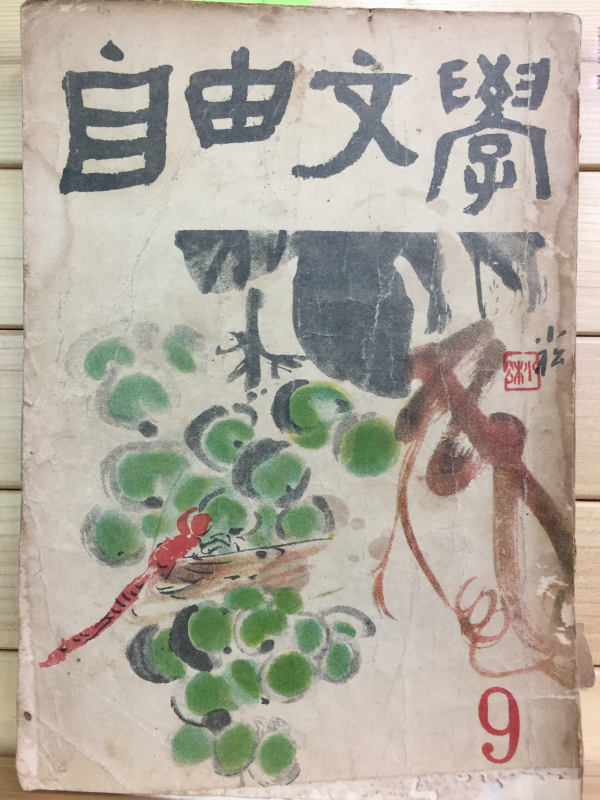 自由文學
小松
9